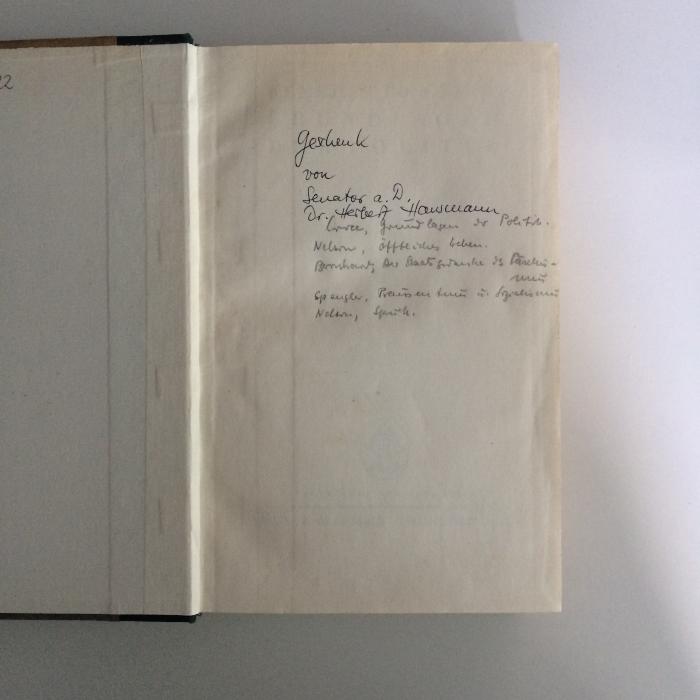 22
Geschenk
von
Senator a. D.
Dr. Herbert Hausmann
Croce, Grundlagen der Politik.
Nelson, öffentliches Leben.
Bernhard, Der Staatsgedanke des Faschis-
mus
Spengler, Preussentum u. Sozialismus
Nelson, Spuk.